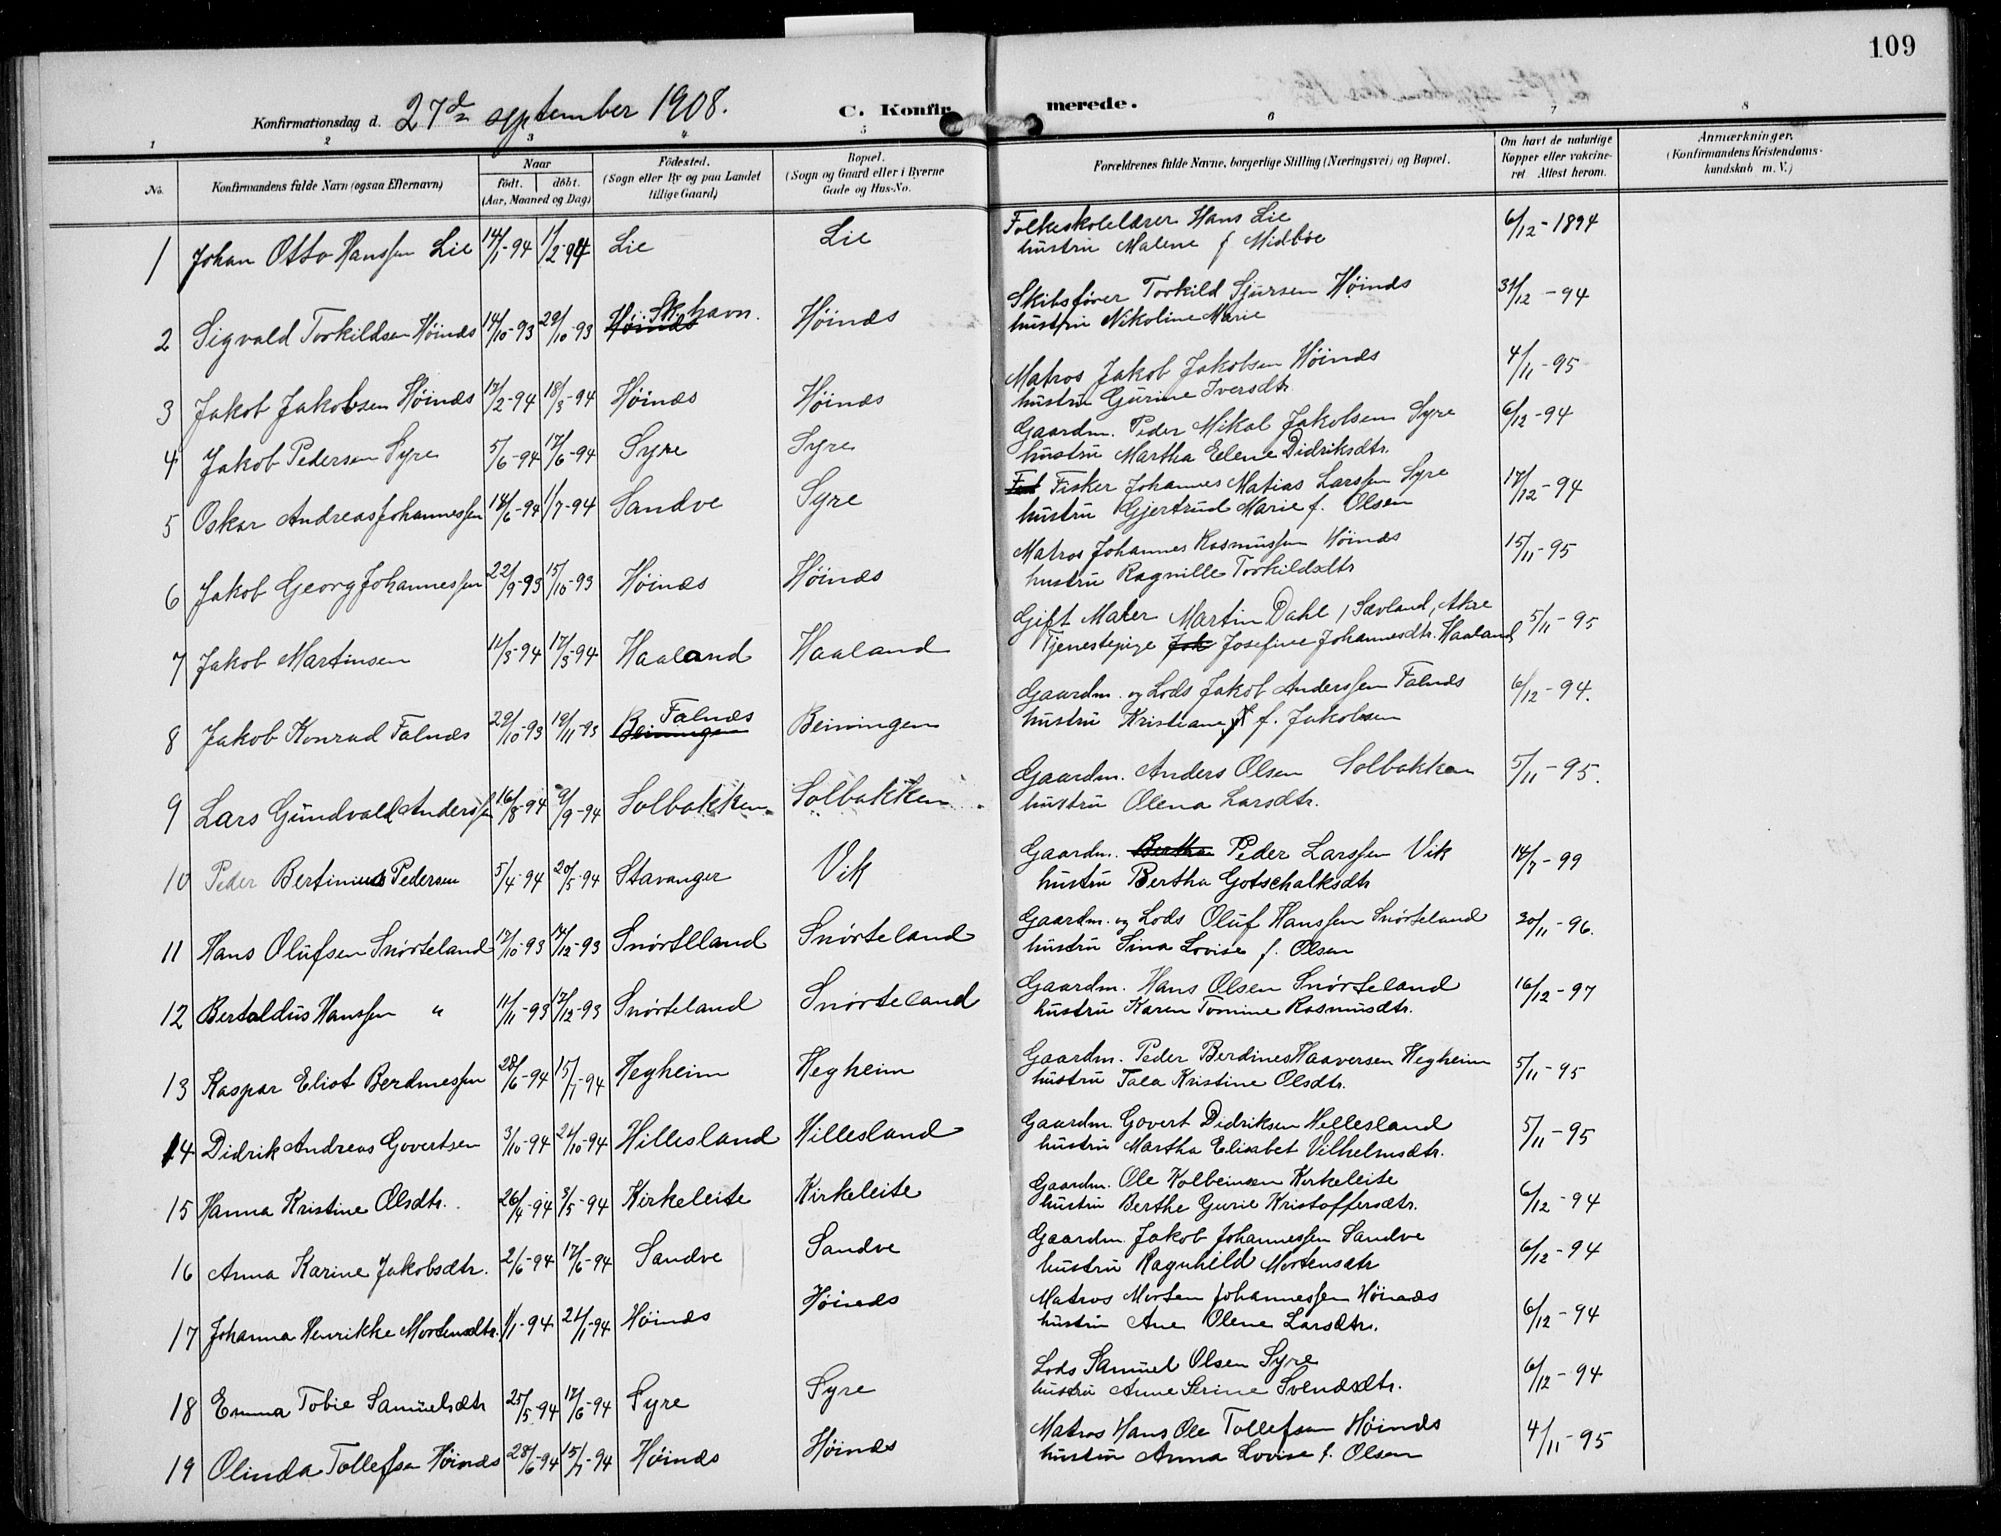 109
Konfirmationsdag d. 27de september 1908. C. Konfirmerede.
1 2 3 4 5 6 7 8
No. Konfirmandens fulde Navn (ogsaa Efternavn) Naar födt. döbt. (Aar, Maaned og Dag) Födested. (Sogn eller By og paa Landet tillige Gaard) Bopæl. (Sogn og Gaard eller i Byerne Gade og Hus-No. Forældrenes fulde Navne, borgerlige Stilling (Næringsvei) og Bopæl. Om havt de naturlige Kopper eller vakcineret Attest herom. Anmærkninger. (Konfirmandens Kristendomskundskab m. V.)
1 Johan Otto Hanssen Lie 14/1-94 1/2-94 Lie Lie Folkeskolelærer Hans Lie 6/12-1894
hustru Malene f Midböe
2 Sigvald Torkildsen Höines 14/10-93 29/10-93 Höines Sk.havn. Höines Skibsförer Torkild Sjursen Höines 31/12-94
hustru Nikoline Marie
3 Jakob Jakobsen Höines 17/2-94 18/3-94 Höines Höines Matros Jakob Jakobsen Höines 4/11-95
hustru Gurine Iversdtr.
4 Jakob Pedersen Syre 5/6-94 17/6-94 Syre Syre Gaardm. Peder Mikal Jakobsen Syre 6/12-94
hustru Martha Elene Didriksdtr.
5 Oskar Andreas Johannessen 14/6-94 1/7-94 Sandve Syre Fisker Johannes Matias Larssen Syre 17/12-94
hustru Gjertrud Marie f. Olsen
6 Jakob Georg Johannessen 22/9-93 15/10-93 Höines Höines Matros Johannes Rasmussen Höines 15/11-95
hustru Ragnille Torkildsdtr
7 Jakob Martinsen 11/3-94 17/3-94 Haaland Haaland Gift Maler Martin Dahl, Sævland, Akre 5/11-95
Tjenestepige Josefine Johannesdtr. Haaland
8 Jakob Konrad Falnes 29/10-93 19/11-93 Beiningen Falnes Beiningen Gaardm. og Lods Jakob Anderssen Falnes 6/12-94.
hustru Kristiane f. Jakobsen
9 Lars Gundvald Anderssen 16/8-94 9/9-94 Solbakken Solbakken Gaardm. Anders Olsen Solbakken 5/11-95.
hustru Olena Larsdtr.
10 Peder Bertinius Pedersen 5/4-94 20/5-94 Stavanger Vik Gaardm. Bertha Peder Larssen Vik 14/7-99
hustru Bertha Gotschalksdtr
11 Hans Olufsen Snörteland 17/10-93 17/12-93 Snörteland Snörteland Gaardm. og Lods Oluf Hanssen Snörteland 30/11-96.
hustru Sina Lovise f. Olsen
12 Bertoldus Hanssen " 11/11-93 17/12-93 Snörteland Snörteland Gaardm. Hans Olsen Snörteland 16/12-97
hustru Karen Tomine Rasmusdtr.
13 Kaspar Eliot Berdinessen 28/6-94 15/7-94 Hegheim Hegheim Gaardm. Peder Berdines Haaversen Hegheim 5/11-95
hustru Tala Kristine Olsdtr.
14 Didrik Andreas Govertsen 3/10-94 21/10-94 Hillesland Hillesland Gaardm. Govert Didriksen Hellesland 5/11-95
hustru Martha Elisabet Vilhelmsdtr.
15 Hanna Kristine Olsdtr. 26/4-94 3/5-94 Kirkeleite Kirkeleite Gaardm. Ole Kolbeinsen Kirkeleite 6/12-94
hustru Berthe Gurie Kristoffersdtr.
16 Anna Karine Jakobsdtr. 2/6-94 17/6-94 Sandve Sandve Gaardm. Jakob Johannessen Sandve 6/12-94
hustru Ragnhild Mortensdtr
17 Johanna Henrikke Mortensdtr. 1/1-94 21/1-94 Höines Höines Matros Morten Johannessen Höines 6/12-94
hustru Ane Olene Larsdtr.
18 Emma Tobie Samuelsdtr 25/5-94 17/6-94 Syre Syre Lods Samuel Olsen Syre 6/12-94
hustru Anne Serine Svendsdtr.
19 Olinda Tollefsen Höines 28/6-94 15/7-94 Höines Höines Matros Hans Ole Tollefsen Höines 4/11-95
hustru Anna Lovise f. Olsen